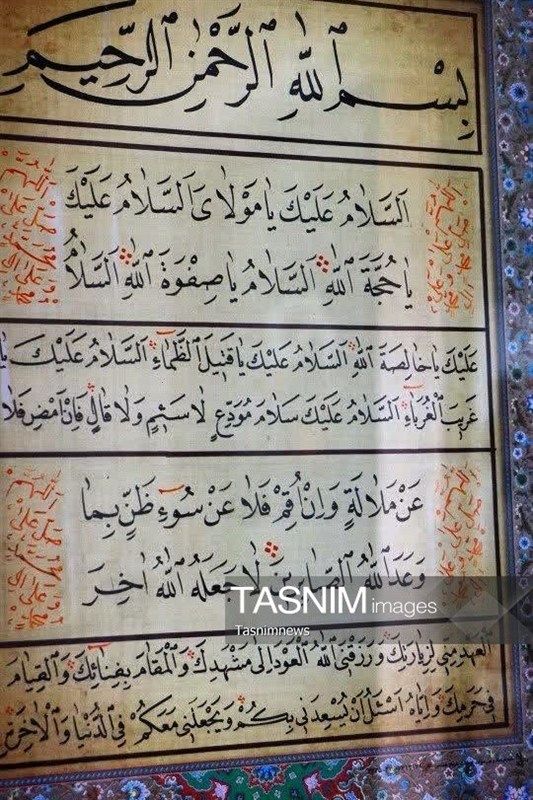 بِسْمِ ٱللّٰهِ ٱلرَّحْمٰنِ ٱلرَّحِيمِ
اَلسَّلامُ عَلَيْكَ يا مَوْلاىَ اَلسَّلامُ عَلَيْكَ
يا حُجَّةَ اللّٰهِ اَلسَّلامُ يا صِفْوَةَ اللّٰهِ اَلسَّلامُ
عَلَيْكَ يا خالِصَةَ اللّٰهِ اَلسَّلامُ عَلَيْكَ يا قَتيلَ الظَّماءِ اَلسَّلامُ عَلَيْكَ يا
غَريبَ الْغُرَباءِ اَلسَّلامُ عَلَيْكَ سَلامَ مُوَدِّعٍ لا سَئِمٍ وَلا قالٍ فَاِنْ اَمْضِ فَلا
عَنْ مَلالَةٍ وَاِنْ اُقِمْ فَلا عَنْ سُوءِ ظَنٍّ بِما
وَعَدَ اللّٰهُ الصّابِرينَ لا جَعَلَهُ اللّٰهُ اٰخِرَ
TASNIM images
Tasnimnews
الْعَهْدِ مِنّي لِزِيارَتِكَ وَرَزَقَنِى اللّٰهُ الْعَوْدَ اِلىٰ مَشْهَدِكَ وَالْمَقامَ بِفِنائِكَ وَالْقِيامَ
في حَرَمِكَ وَاِيّاهُ اَسْئَلُ اَنْ يُسْعِدَني بِكُمْ وَيَجْعَلَني مَعَكُمْ فِى الدُّنْيا وَالْاٰخِرَةِ